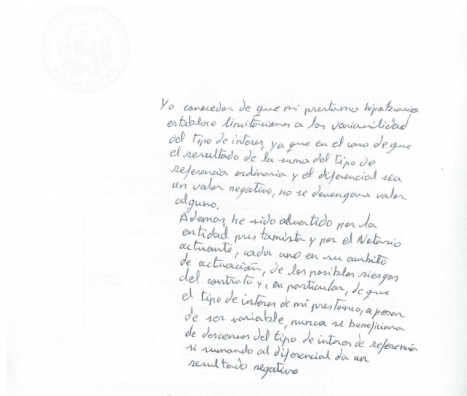 Yo conocedor de que mi prestamo hipotecario
establece limitaciones a las variabilidad
del tipo de interes, ya que en el caso de que
el resultado de la suma del tipo de
referencia ordinaria y el diferencial sea
un valor negativo, no se devengara valor
alguno.
Ademas, he sido advertido por la
entidad prestamista y por el Notario
actuante, cada uno en su ambito
de actuación, de los posibles riesgos
del contrato y, en particular, de que
el tipo de interes de mi prestamo, a pesar
de ser variable, nunca se beneficiara
de descensos del tipo de interes de referencia
si sumando al diferencial da un
resultado negativo